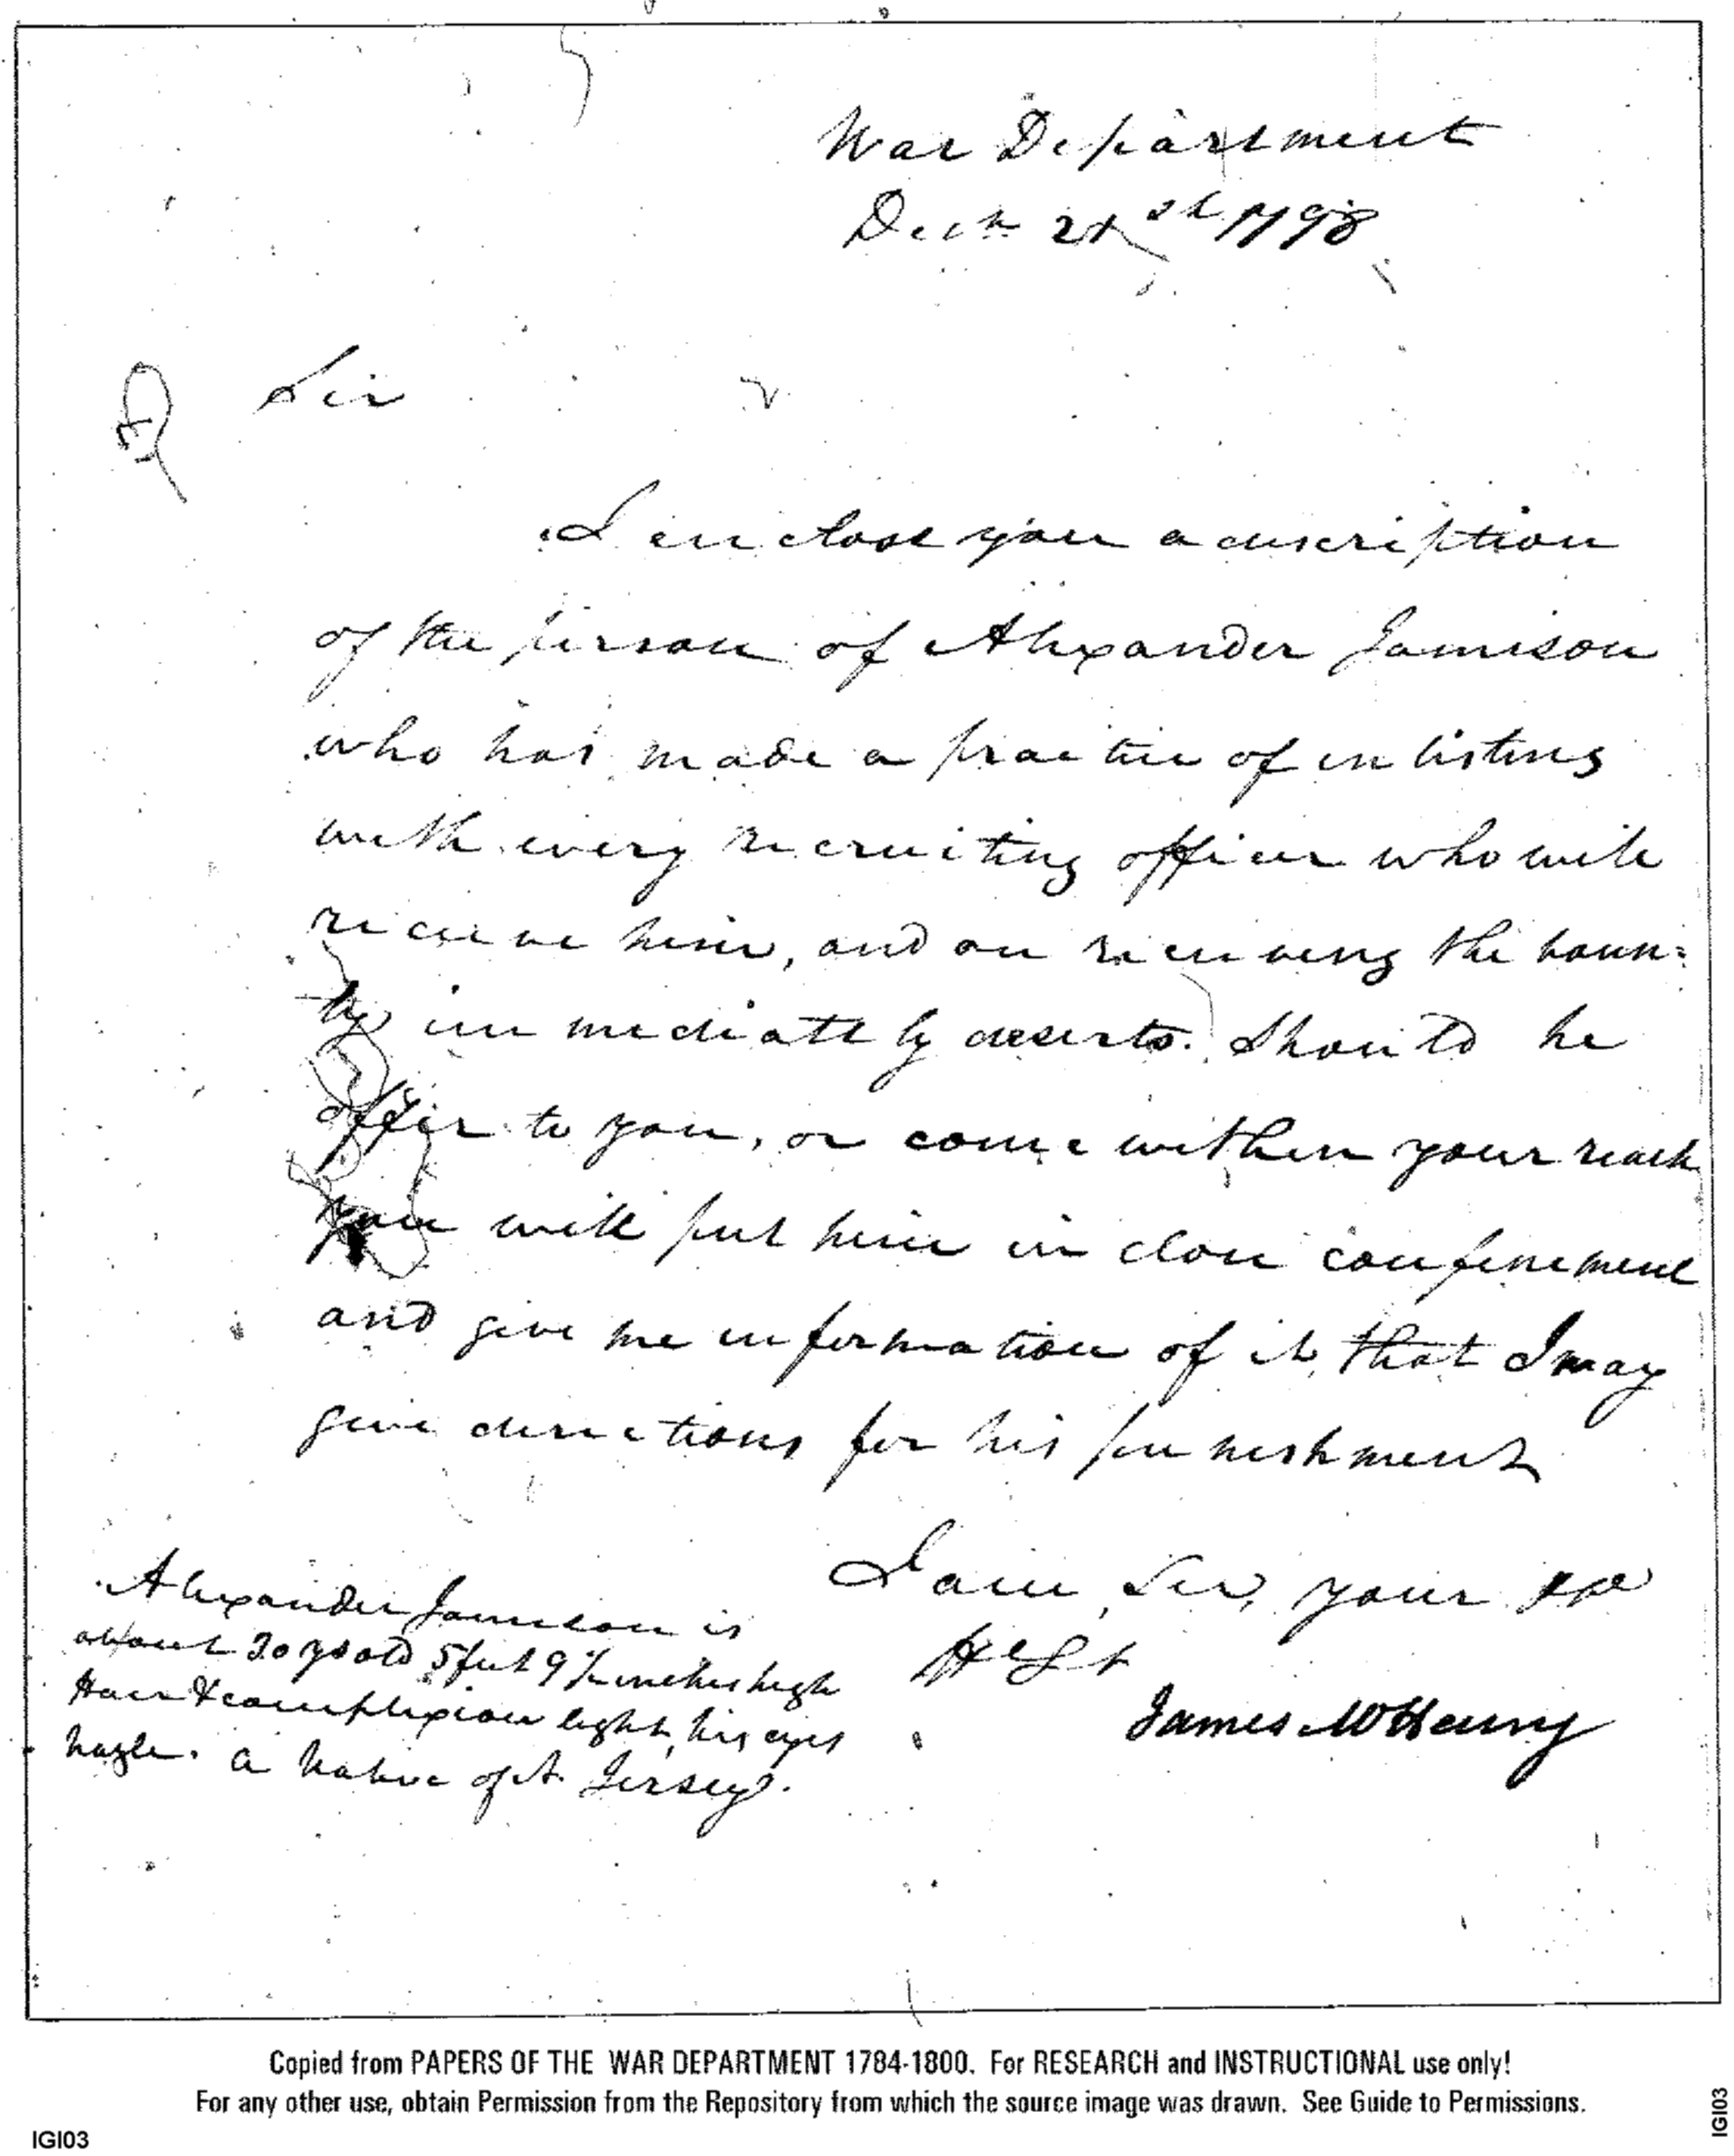 War Department
Decr 21st 1798
Sir
I enclose you a discription
of the person of Alexander Jamison
who has made a practice of inlisting
with every recruiting officer who will
receive him, and on receiving the boun=
ty immediately deserts. Should he
offer to you, or come within your reach
you will put him in close confinement
and give me information of it, that I may
give directions for his punishment
I am, Sir, your
Ob St
James McHenry
Alexander Jamison is
about 30 ys old 5 feet 9½ inches high
Hair & complexion light, his eyes
hazle. a native of N. Jersey.
Copied from PAPERS OF THE WAR DEPARTMENT 1784-1800. For RESEARCH and INSTRUCTIONAL use only!
For any other use, obtain Permission from the Repository from which the source image was drawn. See Guide to Permissions.
IGI03
IGI03